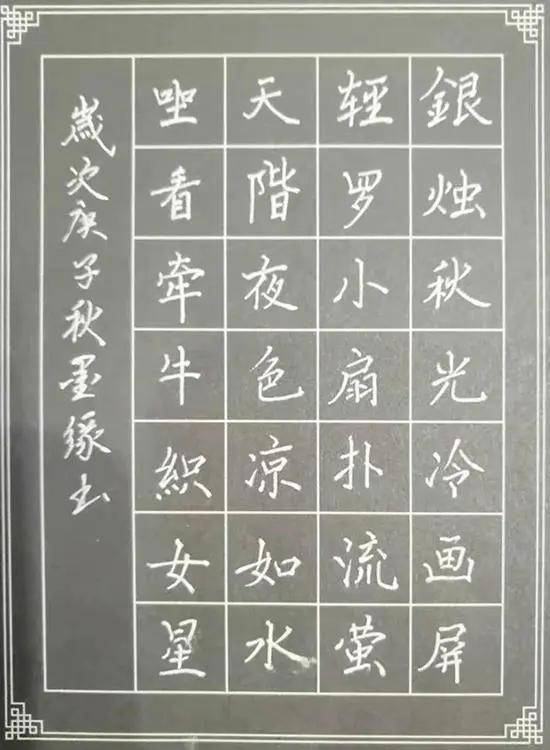 銀烛秋光冷画屏
轻罗小扇扑流萤
天階夜色凉如水
坐看牵牛織女星
歳次庚子秋墨缘书